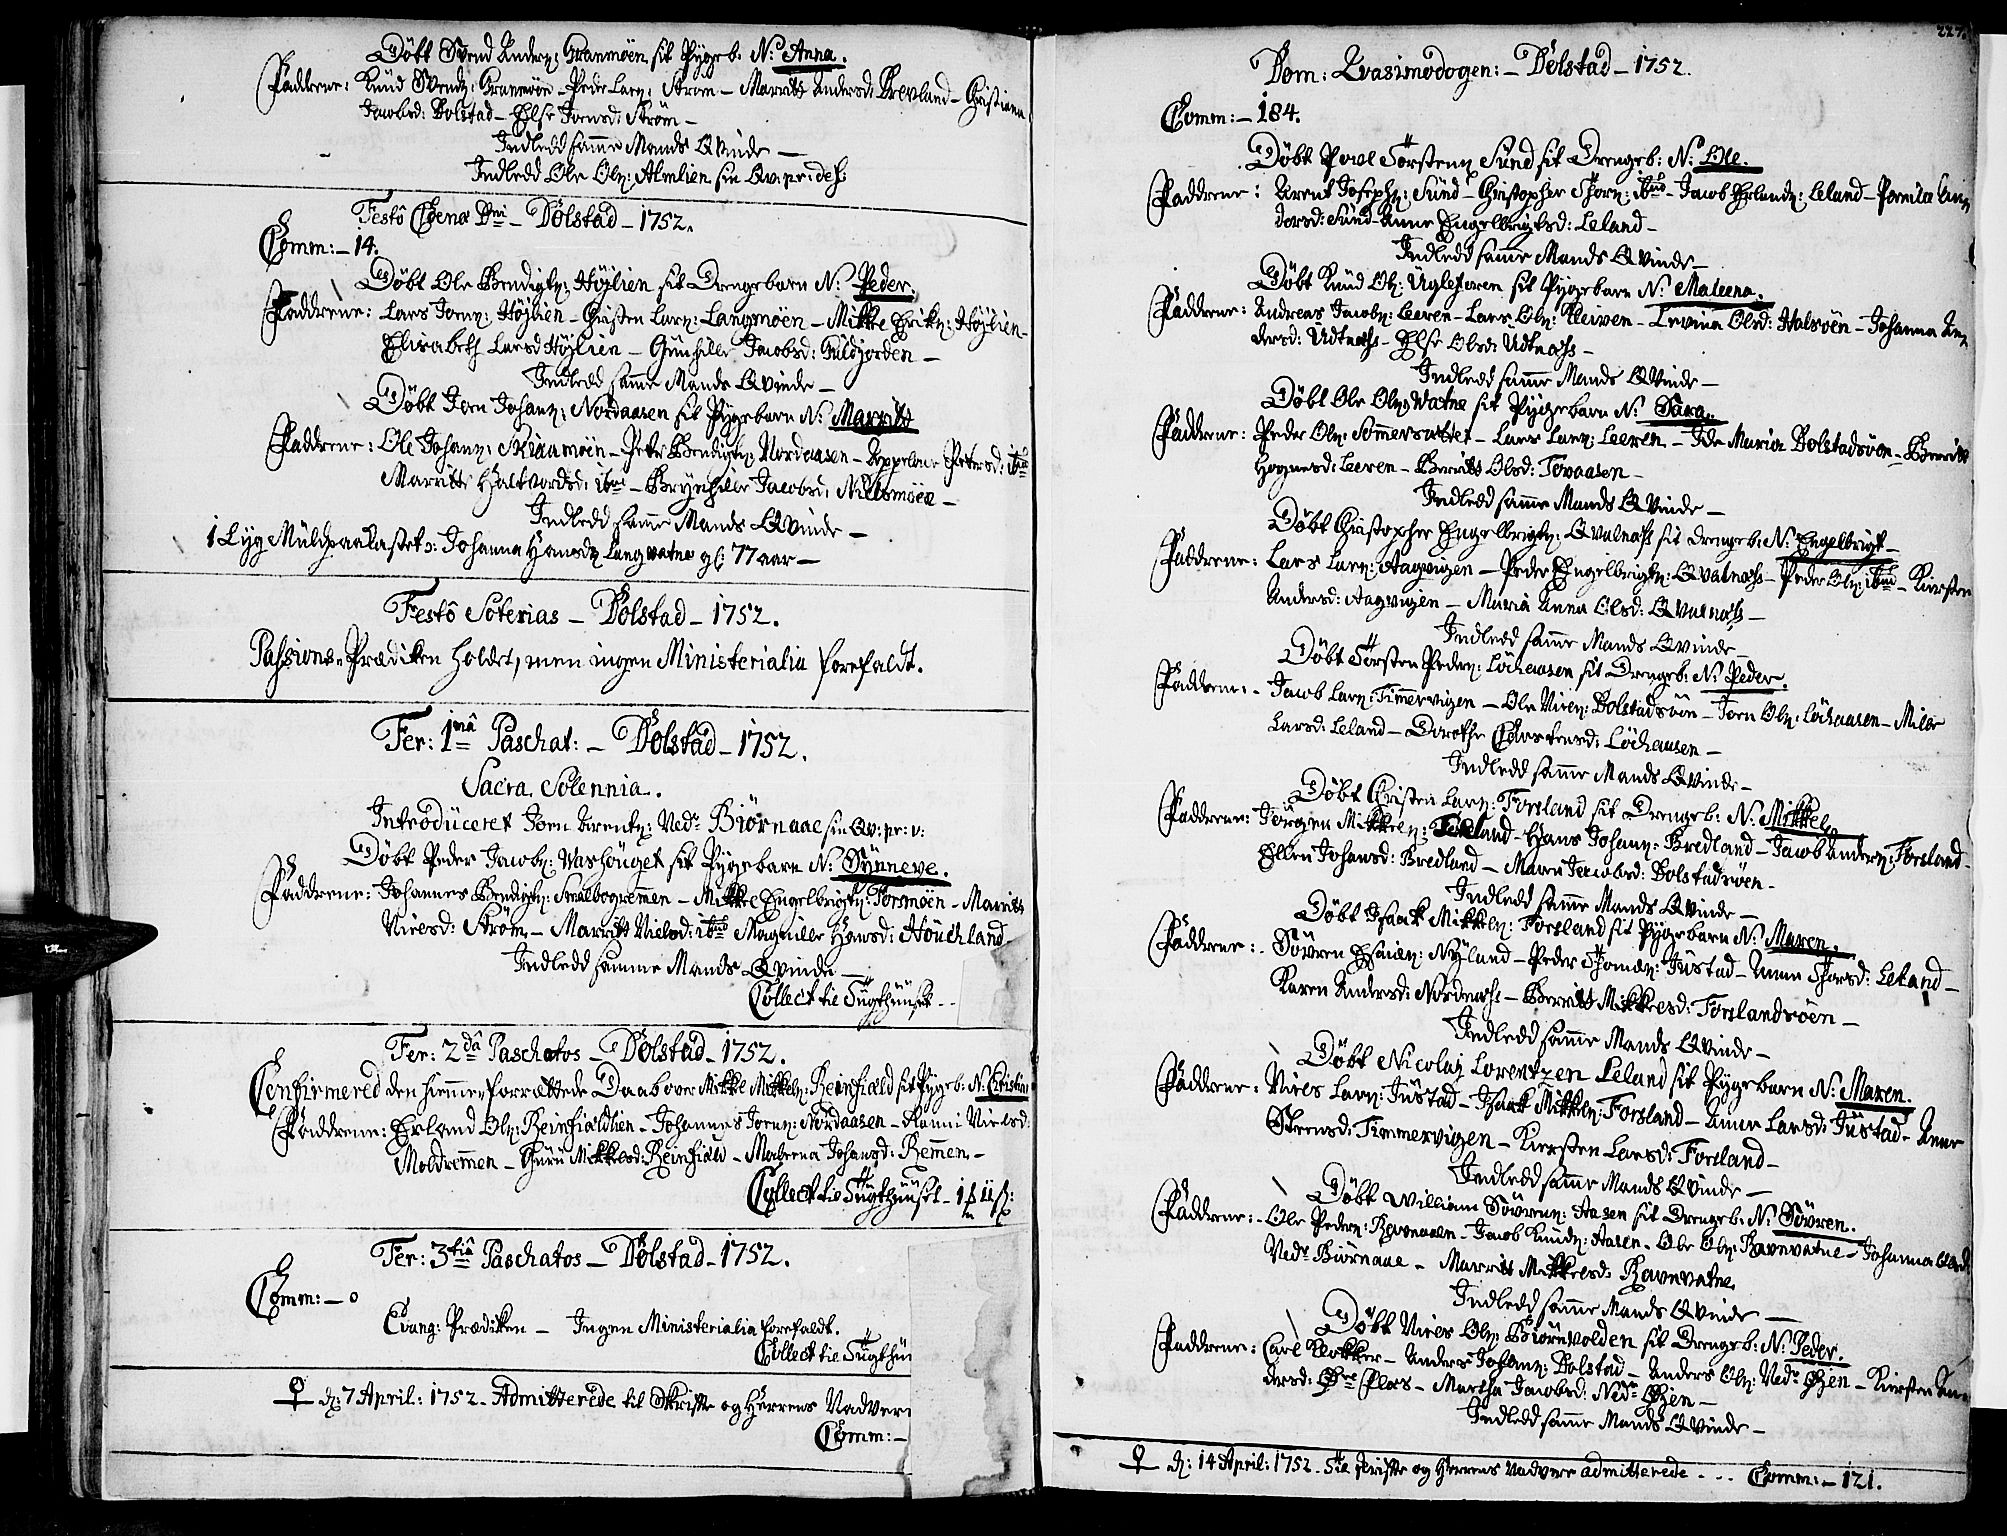 Döbt Svend Anders: Granmöen sit Pygeb. N: Anna.
Faddrene: Knüd Svends: Granmöen – Peder Lars: Ström – Marritt Andersd: Brevland – Christiana
Jacobsd: Dolstad – Else Joensd: Ström –
Indledd samme Mands Qvinde –
Indledd Ole Ols: Almlien sin Qv:
Festô Coenæ Dni – Dolstad – 1752.
Comm: – 14.
Döbt Ole Bendigts: Höjlien sit Drengebarn N: Peder.
Faddrene: Lars Joens: Höjlien – Christen Lars: Langmöen – Mikkel Eriks: Höjlien –
Elisabeth Larsd Höjlien – Günhilld Jacobsd: Güldjorden –
Indledd samme Mands Qvinde –
Döbt Joen Johans: Nordaasen sit Pygebarn N: Marritt
Faddrene: Ole Johans: Kraamöen – Peder Bendigts: Nordaasen – Appelone Petersd: ibid
Marritt Halvordsd: ibid – Brynhilld Jacobsd: Nillsmöen –
Indledd samme Mands Qvinde –
1 Lyg Müldpaakastet: Johanna Hansd Langvatne gl: 77 aar –
Festô Soterias – Dolstad – 1752.
Passions-Prædiken holdet, men ingen Ministerialia forefaldt.
Fer: 1mâ Paschat: – Dolstad – 1752.
Sacra Solennia.
Introdüceret Joen Arents: Ned: Biörnaae sin Qv:
Döbt Peder Jacobs: Vashouget sit Pygebarn N: Synneve.
Faddrene: Johannes Bendigts: Smalbogremmen – Mikkel Engelbrigts: Forsmöen – Marritt
Nielsd: Ström – Marritt Nielsd: ibid Magnilde Hansd: Höuchland
Indledd samme Mands Qvinde –
Collect til Tügthüüset –
Fer: 2dâ Paschatos – Dolstad – 1752.
Confirmered den hiemme-forrettede Daab over Mikkel Mikkels: Reinfiæld sit Pygeb: N: Christian
Faddrene: Erland Ols: Reinfiældlien – Johannes Joens: Nordaasen – Ranni Nielsd:
Moldremmen – Gurü Mikkelsd: Reinfiæld – Maleena Johansd: Remmen –
Collect til Tügthüüset –
Fer: 3tiâ Paschatos – Dolstad – 1752.
Comm: – 0
Evang: Prædiken – Ingen Ministerialia forefaldt.
Collect til Tügthü
♀ d: 7 April: 1752. Admitterede til Skrifte og Herrens Nadvere
Comm: –
227.
Dom: Qvasimodogen: – Dolstad – 1752.
Comm: – 184.
Döbt Povl Torstens Sünd sit Drengeb: N: Ole.
Faddrene: Arent Josephs: Sünd – Christopher Thors: ibid – Jacob Erlands: Leland – Pernila An
dersd: Sünd – Anne Engelbrigtsd: Leland –
Indledd samme Mands Qvinde –
Döbt Knüd Ols: Ügletoren sit Pygebarn N: Maleena.
Faddrene: Andreas Jacobs: Leeren – Lars Ols: Kleiven – Levina Olsd: Halsöen – Johanna An
dersd: Üdtnæss – Else Olsd: Üdtnæss –
Indledd samme Mands Qvinde –
Döbt Ole Ols: Vatne sit Pygebarn N: Sara.
Faddrene: Peder Ols: Sommersætter – Lars Lars: Leeren – Ide Maria Dolstadsöen – Berritt
Hognesd: Leeren – Berritt Olsd: Tovaasen –
Indledd samme Mands Qvinde –
Döbt Christopher Engelbrigts: Qvalnæss sit Drengeb: N: Engelbrigt –
Faddrene: Lars Lars: Aagvigen – Peder Engelbrigts: Qvalnæss – Peder Ols: ibid – Kiersten
Andersd: Aagvigen – Maria Anna Olsd: Qvalnæss –
Indledd samme Mands Qvinde –
Döbt Torsten Peders: Löchaasen sit Drengeb: N: Peder.
Faddrene: – Jacob Lars: Timmervigen – Ole Niels: Dolstadsöen – Joen Ols: Löchaasen – Milde
Larsd: Leland – Dorothe Torstensd: Löchaasen –
Indledd samme Mands Qvinde –
Döbt Christen Lars: Forsland sit Drengeb: N: Mikkel.
Faddrene: Jörgen Mikkels: Forsland – Hans Johans: Bredland – Jacob Anders: Forsland –
Ellen Johansd: Bredland – Maren Jacobsd: Dolstadsöen –
Indledd samme Mands Qvinde –
Döbt Isaak Mikkels: Forsland sit Pygebarn N: Maren.
Faddrene: – Sövren Esaias: Nyland – Peder Thomas: Jüstad – Anne Thorsd: Leland –
Karen Andersd: Nordnæss – Berritt Mikkelsd: Forslandsöen –
Indledd samme Mands Qvinde –
Döbt Nicolaj Lorentzen Leland sit Pygebarn N: Maren.
Faddrene: Niels Lars: Jüstad – Isaak Mikkels: Forsland – Anne Larsd: Jüstad – Anne
Steensd: Timmervigen – Kiersten Larsd: Forsland –
Indledd samme Mands Qvinde –
Döbt William Sövrens: Aasen sit Drengeb: N: Sövren.
Faddrene: – Ole Peders: Ravnaaen – Jacob Knüds: Aasen – Ole Ols: Ravnvatne – Johanna
Ned: Biörnaae – Marritt Mikkelsd: Ravnvatne
Indledd samme Mands Qvinde –
Döbt Niels Ols: Biörnvolden sit Drengeb: N: Peder.
Faddrene: Carl Klokker – Anders Johans: Dolstad – Anders Ols: Ned: Öjen – Kiersten An
dersd: Öre Plads – Martha Jacobsd: Ned: Öjen –
Indledd samme Mands Qvinde –
♀ d: 14 April: 1752. Til Skrifte og Herrens Nadvere admitterede – – – Comm: – 121.